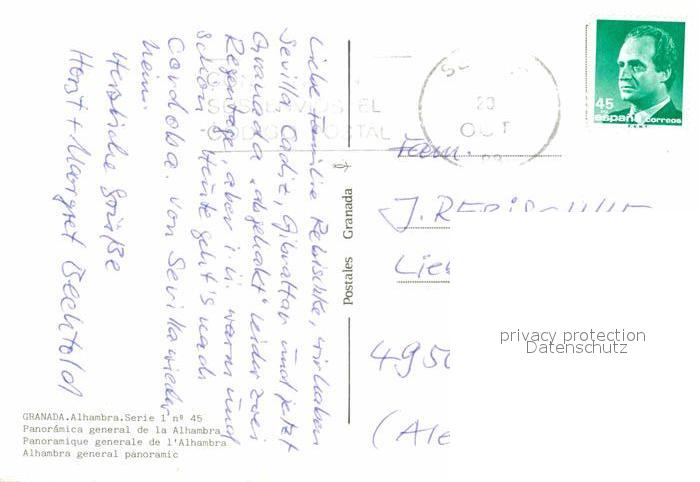 Liebe Familie Rebischke, wir haben
Sevilla Cadiz, Gibraltar und jetzt
Granada „abgehakt" leider zwei
Regentage, aber i. ü. warm und
schön. Heute geht's nach
Cordoba. von Sevilla wieder
heim.
Herzliche Grüße
Horst + Margret Bechtold
GRANADA.Alhambra.Serie 1 nº 45
Panorámica general de la Alhambra
Panoramique generale de l'Alhambra
Alhambra general panoramic
Postales Granada
EL
POSTAL
20
OCT
45
españa correos
F.N.M.T.
Fam.
J.
495
privacy protection
Datenschutz